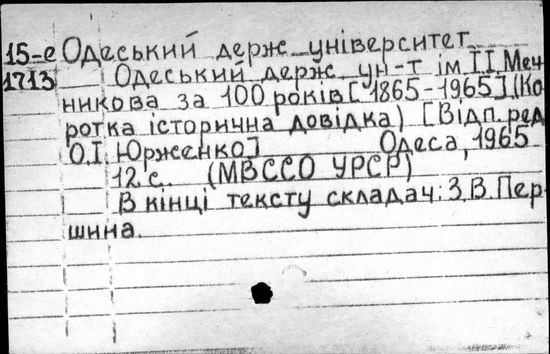 15-е Одеський держ. університет
1713 Одеський держ. ун-т ім. І.І. Меч-
никова за 100 років [1865-1965] (Ко-
ротка історична довідка) [Відп. ред.
О.І. Юрженко] Одеса, 1965
12 с. (МВССО УРСР)
В кінці тексту складач: З.В. Пер-
шина.